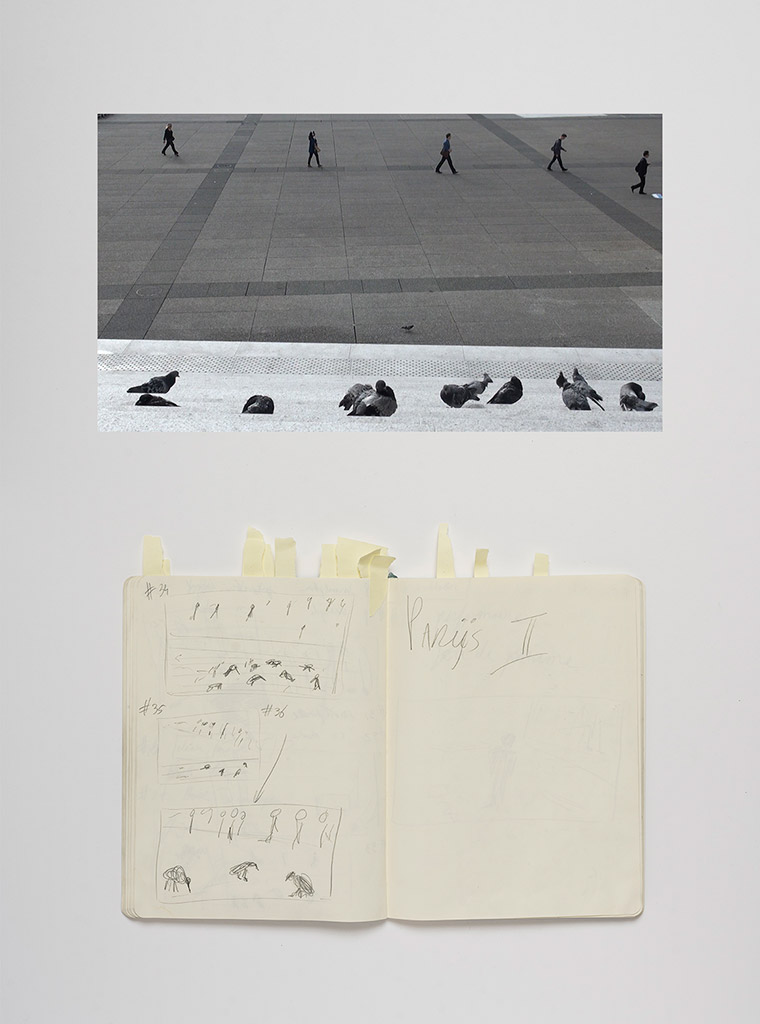 #34
#35
#36
Parijs II